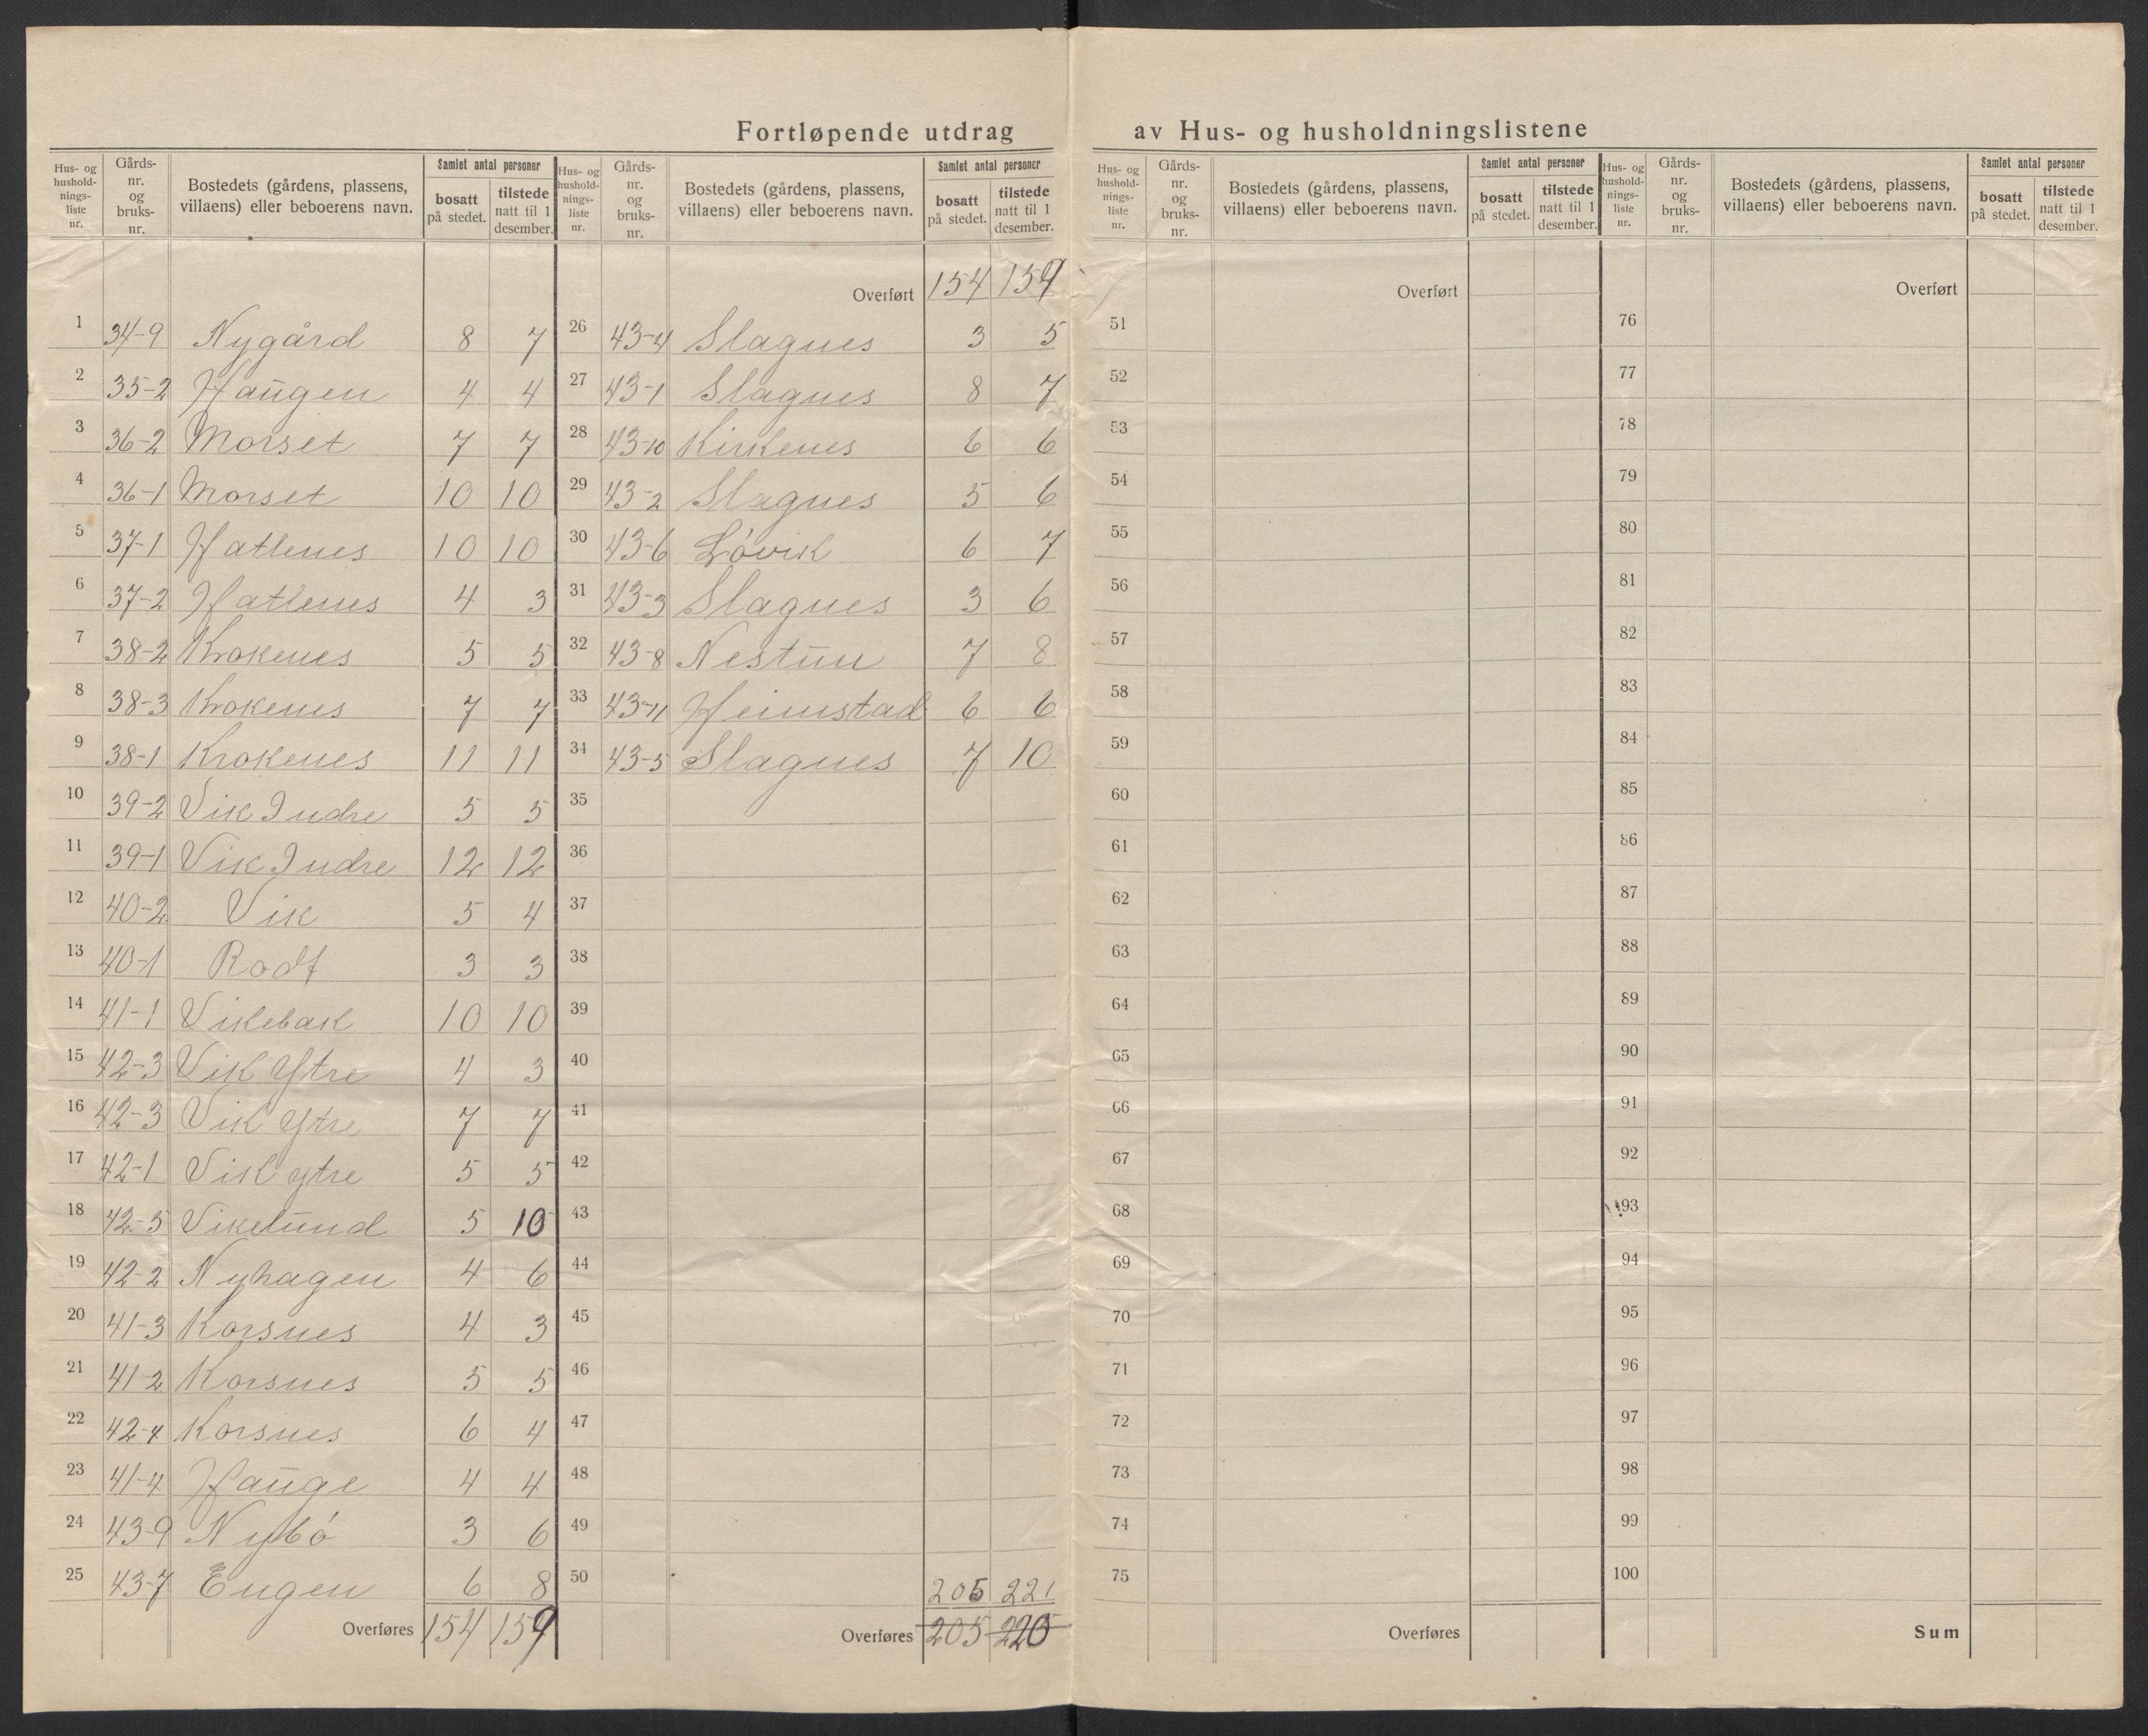 Fortløpende utdrag av Hus- og husholdningslistene
Hus- og hushold-nings-liste nr. Gårds-nr. og bruks-nr. Bostedets (gårdens, plassens, villaens) eller beboerens navn. Samlet antal personer bosatt på stedet. tilstede natt til 1 desember.
1 34-9 Nygård 8 7
2 35-2 Haugen 4 4
3 36-2 Morset 7 7
4 36-1 Morset 10 10
5 37-1 Hatlenes 10 10
6 37-2 Hatlenes 4 3
7 38-2 Krokenes 5 5
8 38-3 Krokenes 7 7
9 38-1 Krokenes 11 11
10 39-2 Vik Indre 5 5
11 39-1 Vik Indre 12 12
12 40-2 Vik 5 4
13 40-1 Rodt 3 3
14 41-1 Vikebak 10 10
15 42-3 Vik Ytre 4 3
16 42-3 Vik Ytre 7 7
17 42-1 Vik ytre 5 5
18 42-5 Vikelund 5 10
19 42-2 Nyhagen 4 6
20 41-3 Korsnes 4 3
21 41-2 Korsnes 5 5
22 42-4 Korsnes 6 4
23 41-4 Hauge 4 4
24 43-9 Nybó 3 6
25 43-7 Engen 6 8
Overføres 154 159
Hus- og hushold-nings-liste nr. Gårds-nr. og bruks-nr. Bostedets (gårdens, plassens, villaens) eller beboerens navn. Samlet antal personer bosatt på stedet. tilstede natt til 1 desember.
Overført 154 159
26 43-4 Slagnes 3 5
27 43-1 Slagnes 8 7
28 43-10 Kirkenes 6 6
29 43-2 Slagnes 5 6
30 43-6 Lóvik 6 7
31 43-3 Slagnes 3 6
32 43-8 Nestun 7 8
33 43-11 Heimstad 6 6
34 43-5 Slagnes 7 10
35
36
37
38
39
40
41
42
43
44
45
46
47
48
49
50 205 221
Overføres 205 220
Hus- og hushold-nings-liste nr. Gårds-nr. og bruks-nr. Bostedets (gårdens, plassens, villaens) eller beboerens navn. Samlet antal personer bosatt på stedet. tilstede natt til 1 desember.
Overført
51
52
53
54
55
56
57
58
59
60
61
62
63
64
65
66
67
68
69
70
71
72
73
74
75
Overføres
Hus- og hushold-nings-liste nr. Gårds-nr. og bruks-nr. Bostedets (gårdens, plassens, villaens) eller beboerens navn. Samlet antal personer bosatt på stedet. tilstede natt til 1 desember.
Overført
76
77
78
79
80
81
82
83
84
85
86
87
88
89
90
91
92
93
94
95
96
97
98
99
100
Sum